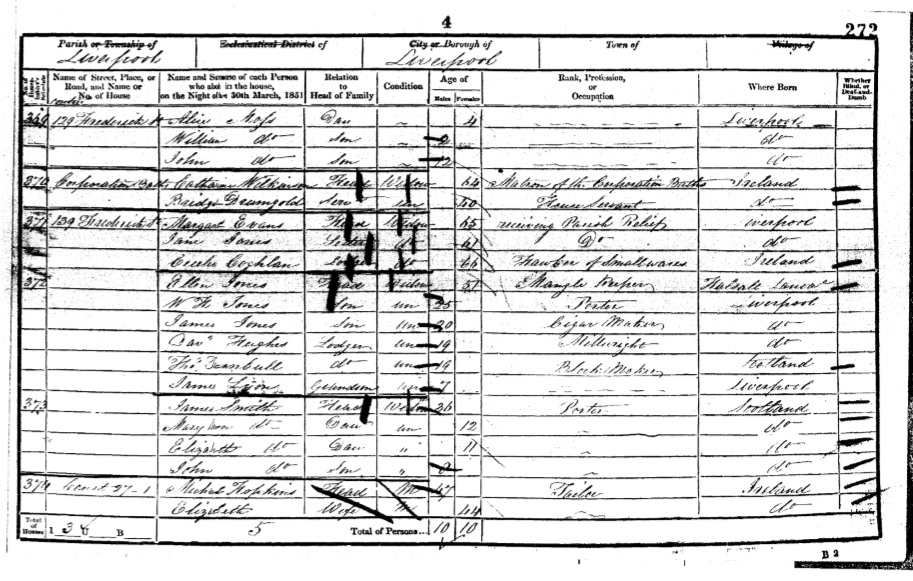 4
272
Parish or Township of Ecclesiastical District of City or Borough of Town of Village of
Liverpool Liverpool
Name of Street, Place, or Road, and Name or No. of House
Name and Surname of each Person who abode in the house, on the Night of the 30th March, 1851
Relation to Head of Family
Condition
Age of
Males Females
Rank, Profession, or Occupation
Where Born
Whether Blind, or Deaf-and-Dumb
369 129 Frederick St Moss Dau 4 Liverpool
William do Son 2 do
John do Son do
370 Corporation Baths Catharine Wilkinson Head Widow 64 Matron of the Corporation Baths Ireland
Bridgt Drumgold un 60 House Servant do
371 139 Frederick St Margart Evans Head Widow 65 receiving Parish Relief Liverpool
Jane Jones do 61 Do do
Cecelia Cochlan do 66 Hawker of Smallwares Ireland
372 Ellen Jones Head Widow 51 Mangle Keeper Halsall
W H Jones Son un 25 Porter Liverpool
James Jones Son un 20 Cigar Maker do
Davd Hughes Lodger un 19 Millwright do
Thos Turnbull do un 19 Block Maker Scotland
James Lyon Grandson un 7 Liverpool
373 James Smith Head Widow 36 Porter Scotland
Mary Ann do Dau un 12 do
Elizabeth do Dau " 11 do
John do Son " 8 do
374 Michal Hopkins Head M 47 Tailor Ireland
Elizabeth Wife M 44 do
Total of Houses 1 U B 5 Total of Persons... 10 10
B 2